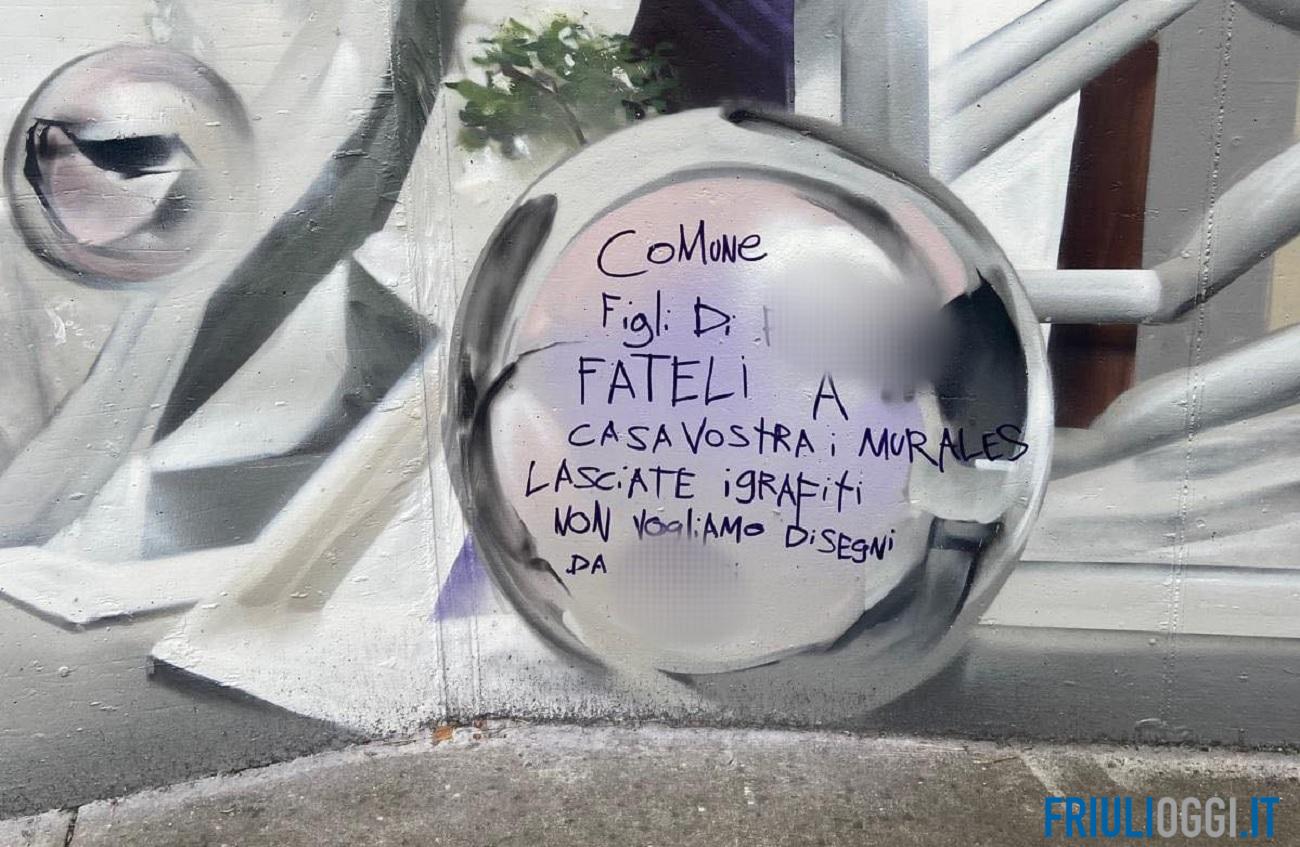 COMUNE
Figli Di
FATELI A
CASA VOSTRA i MURALES
LASCiATE i GRAFiti
NON VOgLiAMO DiSEGNi
DA
FRIULIOGGI.IT